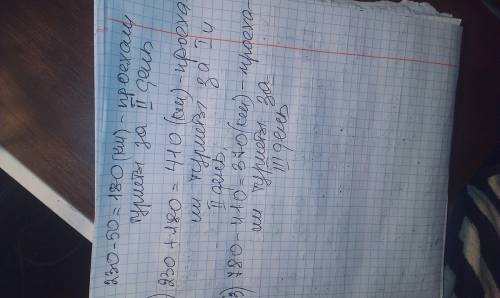 230-50=180(км)-проехали
туристы за II день
) 230+180=410(км)-проеха-
ли туристы за I и
II день.
3) 780-410=370(км)-проеха-
ли туристы за
III день